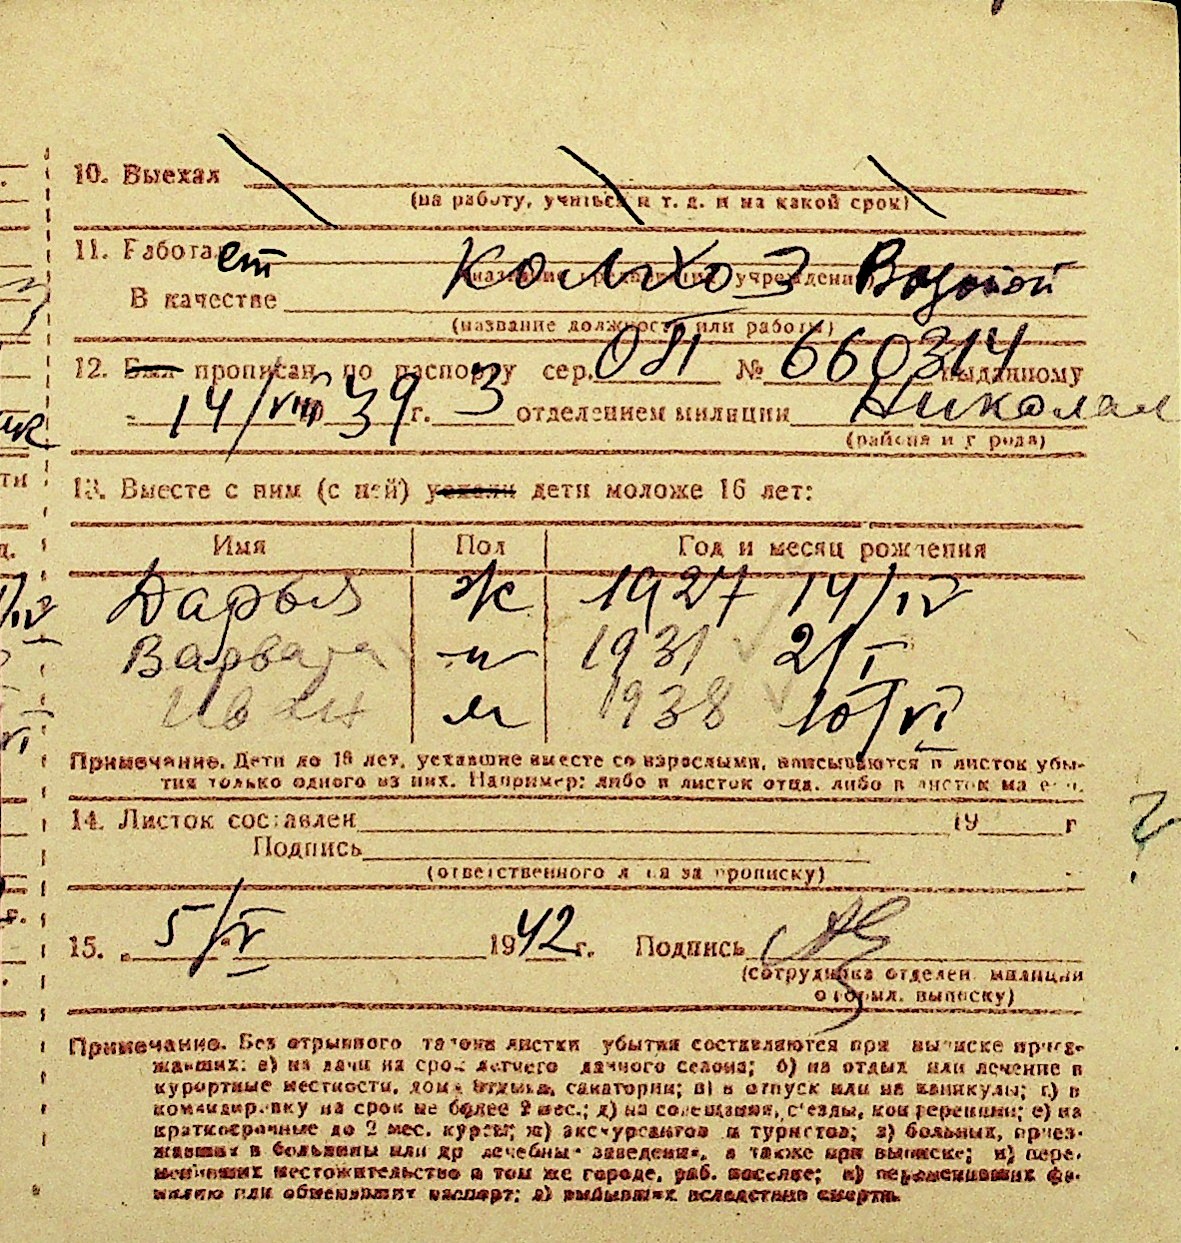 10. Выехал
(на работу, учиться и т. д. и на какой срок)
11. Работает колхоз Водопой
В качестве
(название должности или работы)
12. Был прописан по паспорту сер. ОЯ № 660314 выданному
14/VIII 39 г. 3 отделением милиции Николаев
(района и города)
13. Вместе с ним (с ней) уехали дети моложе 16 лет:
Имя Пол Год и месяц рождения
Дарья ж 1927 14/IV
Варвара 1931 21/I
Иван м 1938 10/VI
Примечание. Дети до 16 лет, уехавшие вместе со взрослыми, вписываются в листок убы-
тия только одного из них. Например: либо в листок отца, либо в листок матери.
14. Листок составлен 19 г
Подпись
(ответственного лица за прописку)
15. 5/V 1942 г. Подпись
(сотрудника отделен. милиции
оформл. выписку)
Примечание. Без отрывного талона листки убытия составляются при выписке приез-
жавших: а) на дачи на срок летнего дачного сезона; б) на отдых или лечение в
курортные местности, дома отдыха, санатории; в) в отпуск или на каникулы; г) в
командировку на срок не более 2 мес.; д) на совещания, с'езды, конференции; е) на
краткосрочные до 2 мес. курсы; ж) экскурсантов и туристов; з) больных, приез-
жавших в больницы или др лечебные заведения, а также при выписке; и) пере-
менивших местожительство в том же городе, раб. поселке; к) переменивших фа-
милию или обменявших паспорт; л) выбывших вследствие смерти.